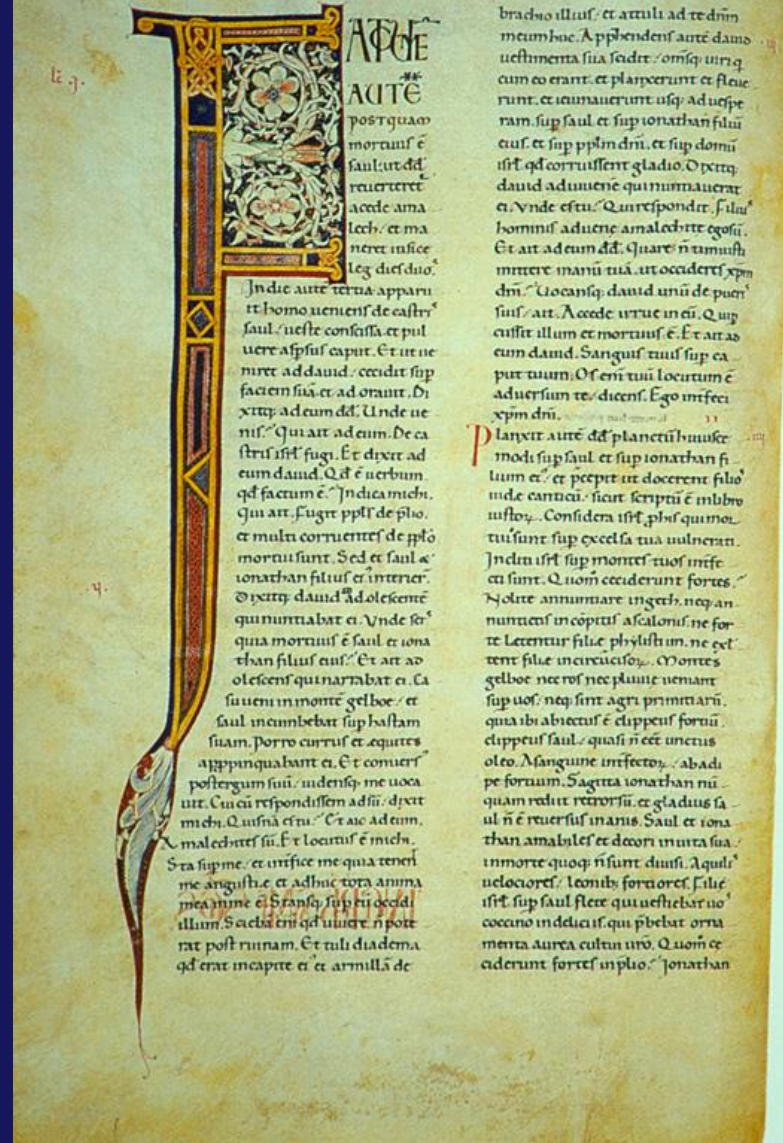 F
ACTU̅ E̅
AUTE̅
POSTQUAM
mortuus e̅
saul. ut dd̅
reverteret
a cede ama
lech. et ma
neret insice
leg dies duo.
In die aute̅ tertia apparu
it homo veniens de castris
saul. veste conscissa. et pul
vere asp̅sus caput. Et ut ve
niret ad david. cecidit sup
faciem sua̅. et adoravit. Di
xitq; ad eum dd̅. Unde ve
nis? Qui ait ad eum. De ca
stris isrl̅ fugi. Et dixit ad
eum david. Qd̅ e̅ verbum
qd̅ factum e̅? Indica michi.
Qui ait. Fugit ppl̅s de p̅lio.
et multi corruentes de pplo̅
mortui sunt. Sed et saul &
ionathan filius ei' interier̅.
Dixitq; david ad adolescente̅
qui nuntiabat ei. Unde scis
quia mortuus e̅ saul et iona
than filius eius? Et ait ad
olescens qui narrabat ei. Ca
su veni in monte̅ gelboe. et
saul incumbebat sup hastam
suam. Porro currus et equites
appinquabant ei. Et conversus
post tergum suu̅. vidensq; me voca
vit. Cui cu̅ respondissem adsu̅. dixit
michi. Quisna̅ es tu? Et aio ad eum.
Amalechites su̅. Et locutus e̅ michi.
Sta sup me. et int̅fice me quia tenen̅
me angustie. et adhuc tota anima
mea in me e̅. Stansq; sup eu̅ occidi
illum. Sciebam eni̅ qd̅ vivere n̅ pote
rat post ruinam. Et tuli diadema
qd̅ erat in capite ei' et armilla̅ de
brachio illius. et attuli ad te dn̅m
meum huc. App̅hendens aute̅ david
vestimenta sua scidit. om̅sq; viri q
cum eo erant. et planxerunt et fleve
runt. et ieiunaverunt usq; ad vespe
ram. sup saul et sup ionathan filiu̅
eius. et sup pplm̅ dn̅i. et sup domu̅
isrl̅. qd̅ corruissent gladio. Dixitq;
david ad iuvene̅ qui nuntiaverat
ei. Unde es tu? Qui respondit. Filius
hominis advene amalechite ego su̅.
Et ait ad eum dd̅. Quare n̅ timuisti
mittere manu̅ tua̅. ut occideres xp̅m
dn̅i? Vocansq; david unu̅ de pueris
suis. ait. Accede irrue in eu̅. Qui p
cussit illum et mortuus e̅. Et ait ad
eum david. Sanguis tuus sup ca
put tuum. Os eni̅ tuu̅ locutum e̅
adversum te. dicens. Ego int̅feci
xp̅m dn̅i.
Planxit aute̅ dd̅ planctu̅ huiusce
modi sup saul et sup ionathan fi
lium ei'. et p̅cepit ut docerent filios
iude canticu̅. sicut scriptu̅ e̅ in libro
iustoꝝ. Considera isrl̅ p his qui mor
tui sunt sup excelsa tua vulnerati.
Incliti isrl̅ sup montes tuos int̅fe
cti sunt. Quom̅ ceciderunt fortes?
Nolite annuntiare in geth. neq; an
nuntietis in co̅pitis ascalonis. ne for
te letentur filie phylistiim. ne exl
tent filie incircu̅cisoꝝ. Montes
gelboe nec ros nec pluvie veniant
sup vos. neq; sint agri primitiaru̅.
quia ibi abiectus e̅ clippeus fortiu̅.
clippeus saul. quasi n̅ e̅et unctus
oleo. A sanguine int̅fectoꝝ. ab adi
pe fortium. Sagitta ionathan nu̅
quam rediit retrorsu̅. et gladius sa
ul n̅ e̅ reversus inanis. Saul et iona
than amabiles et decori in vita sua.
in morte quoq; n̅ sunt divisi. Aquilis
velociores. leonib; fortiores. Filie
isrl̅ sup saul flete qui vestiebat vos
coccino in deliciis. qui p̅bebat orna
menta aurea cultui v̅ro. Quom̅ ce
ciderunt fortes in p̅lio? Jonathan